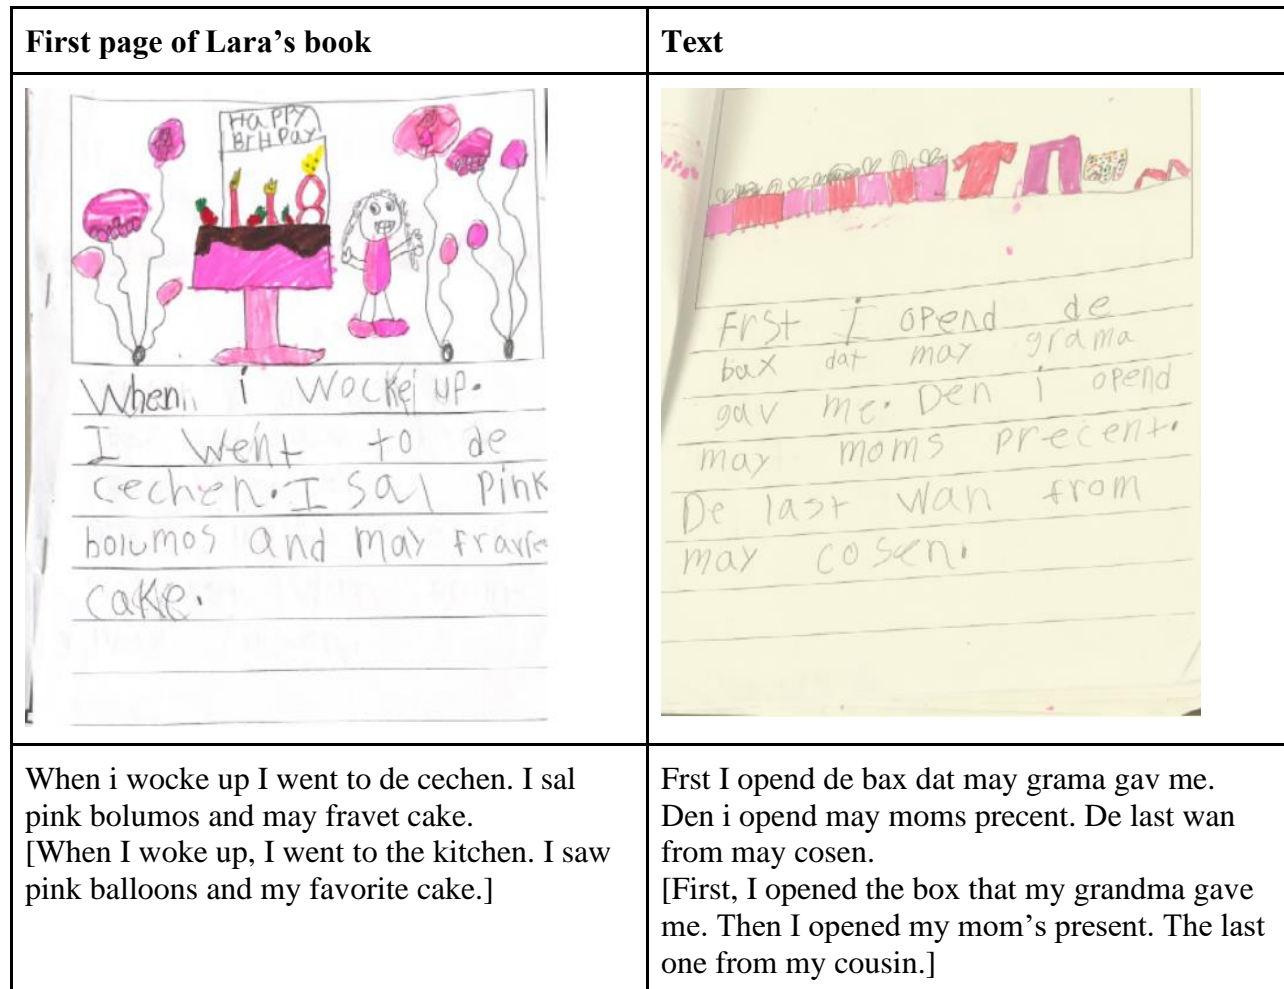 First page of Lara's book
Text
HAPPY
BrHDay
When i wocke up.
I went to de
cechen. I sal pink
bolumos and may
cake.
Frst I opend de
bax dat may grama
gav me. Den i opend
may moms precent.
De last wan from
may cosen.
When i wocke up I went to de cechen. I sal
pink bolumos and may fravet cake.
[When I woke up, I went to the kitchen. I saw
pink balloons and my favorite cake.]
Frst I opend de bax dat may grama gav me.
Den i opend may moms precent. De last wan
from may cosen.
[First, I opened the box that my grandma gave
me. Then I opened my mom's present. The last
one from my cousin.]